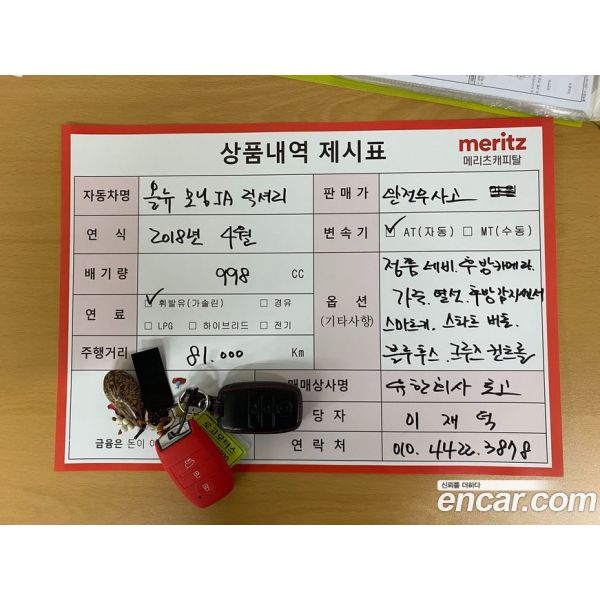 상품내역 제시표
meritz
메리츠캐피탈
자동차명 올뉴 모닝JA 럭셔리
판매가 완전무사고
연식 2018년 4월
변속기 ☑ AT(자동) □ MT(수동)
배기량 998 CC
옵션
(기타사항)
정품 네비. 후방카메라
가죽. 열선. 후방감지센서
스마트키. 스타트 버튼.
블루투스. 크루즈 컨트롤
연료 ☑ 휘발유(가솔린) □ 경유
□ LPG □ 하이브리드 □ 전기
주행거리 81.000 Km
매매상사명 유한회사 로고
당자 이재덕
연락처 010. 4422. 3878
금융은 돈이 아
로고모터스
신뢰를 더하다
encar.com